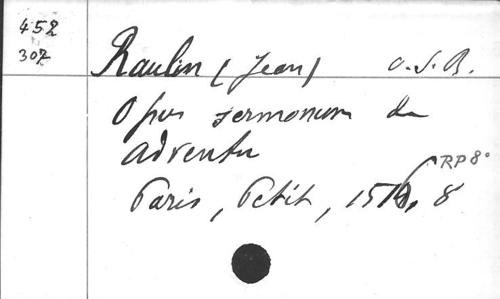 452
307
Raulin (Jean) O.S.B.
Opus sermonum de
adventu
RP 8°
Paris, Petit, 1516, 8